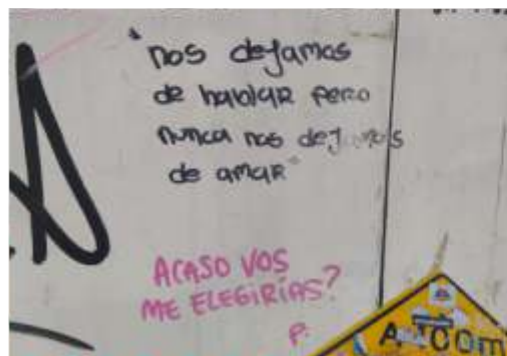 "nos dejamos
de hablar pero
nunca nos dejamos
de amar"
ACASO VOS
ME ELEGIRÍAS?
P.